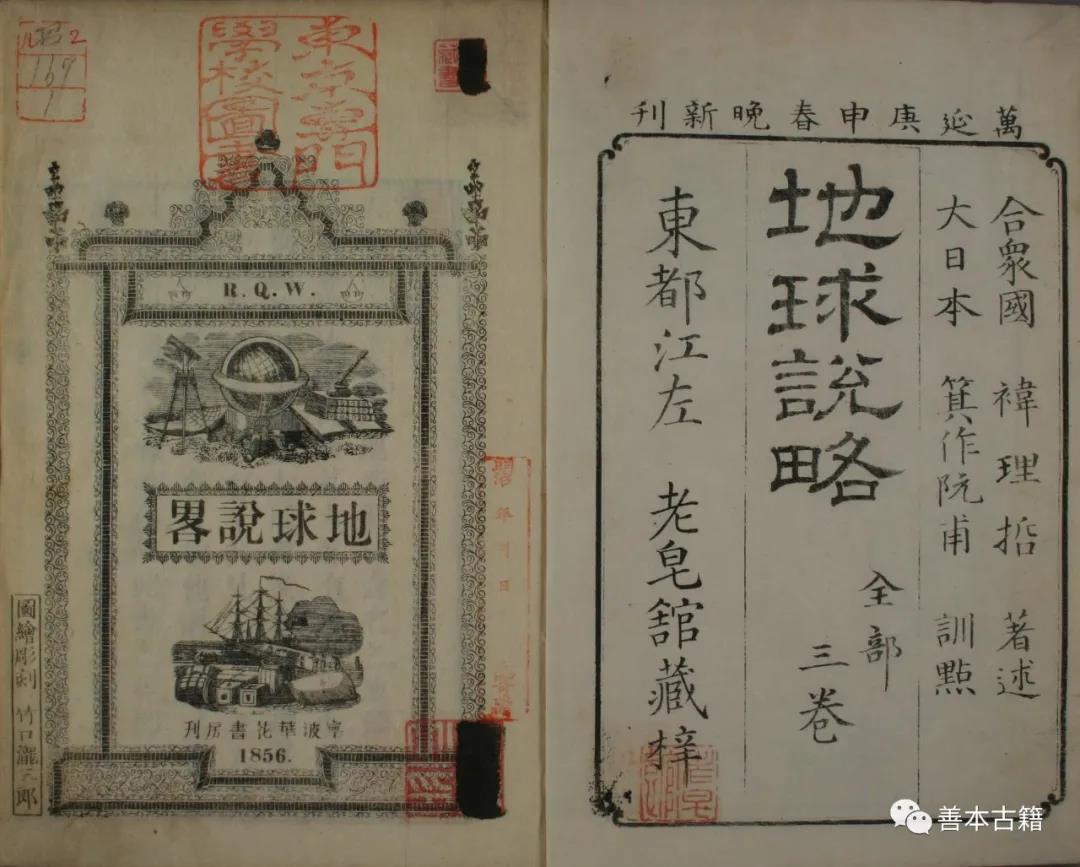 萬延庚申春晚新刊
合衆國 褘理哲 著述
大日本 箕作阮甫 訓點
地球説略
全部
三卷
東都江左 老皂舘藏梓
東京專門
學校圖書
藏書
2
169
1
R. Q. W.
地球說畧
寧波華花書房刊
1856.
圖繪彫刻 竹口瀧三郎
年 月 日
善本古籍